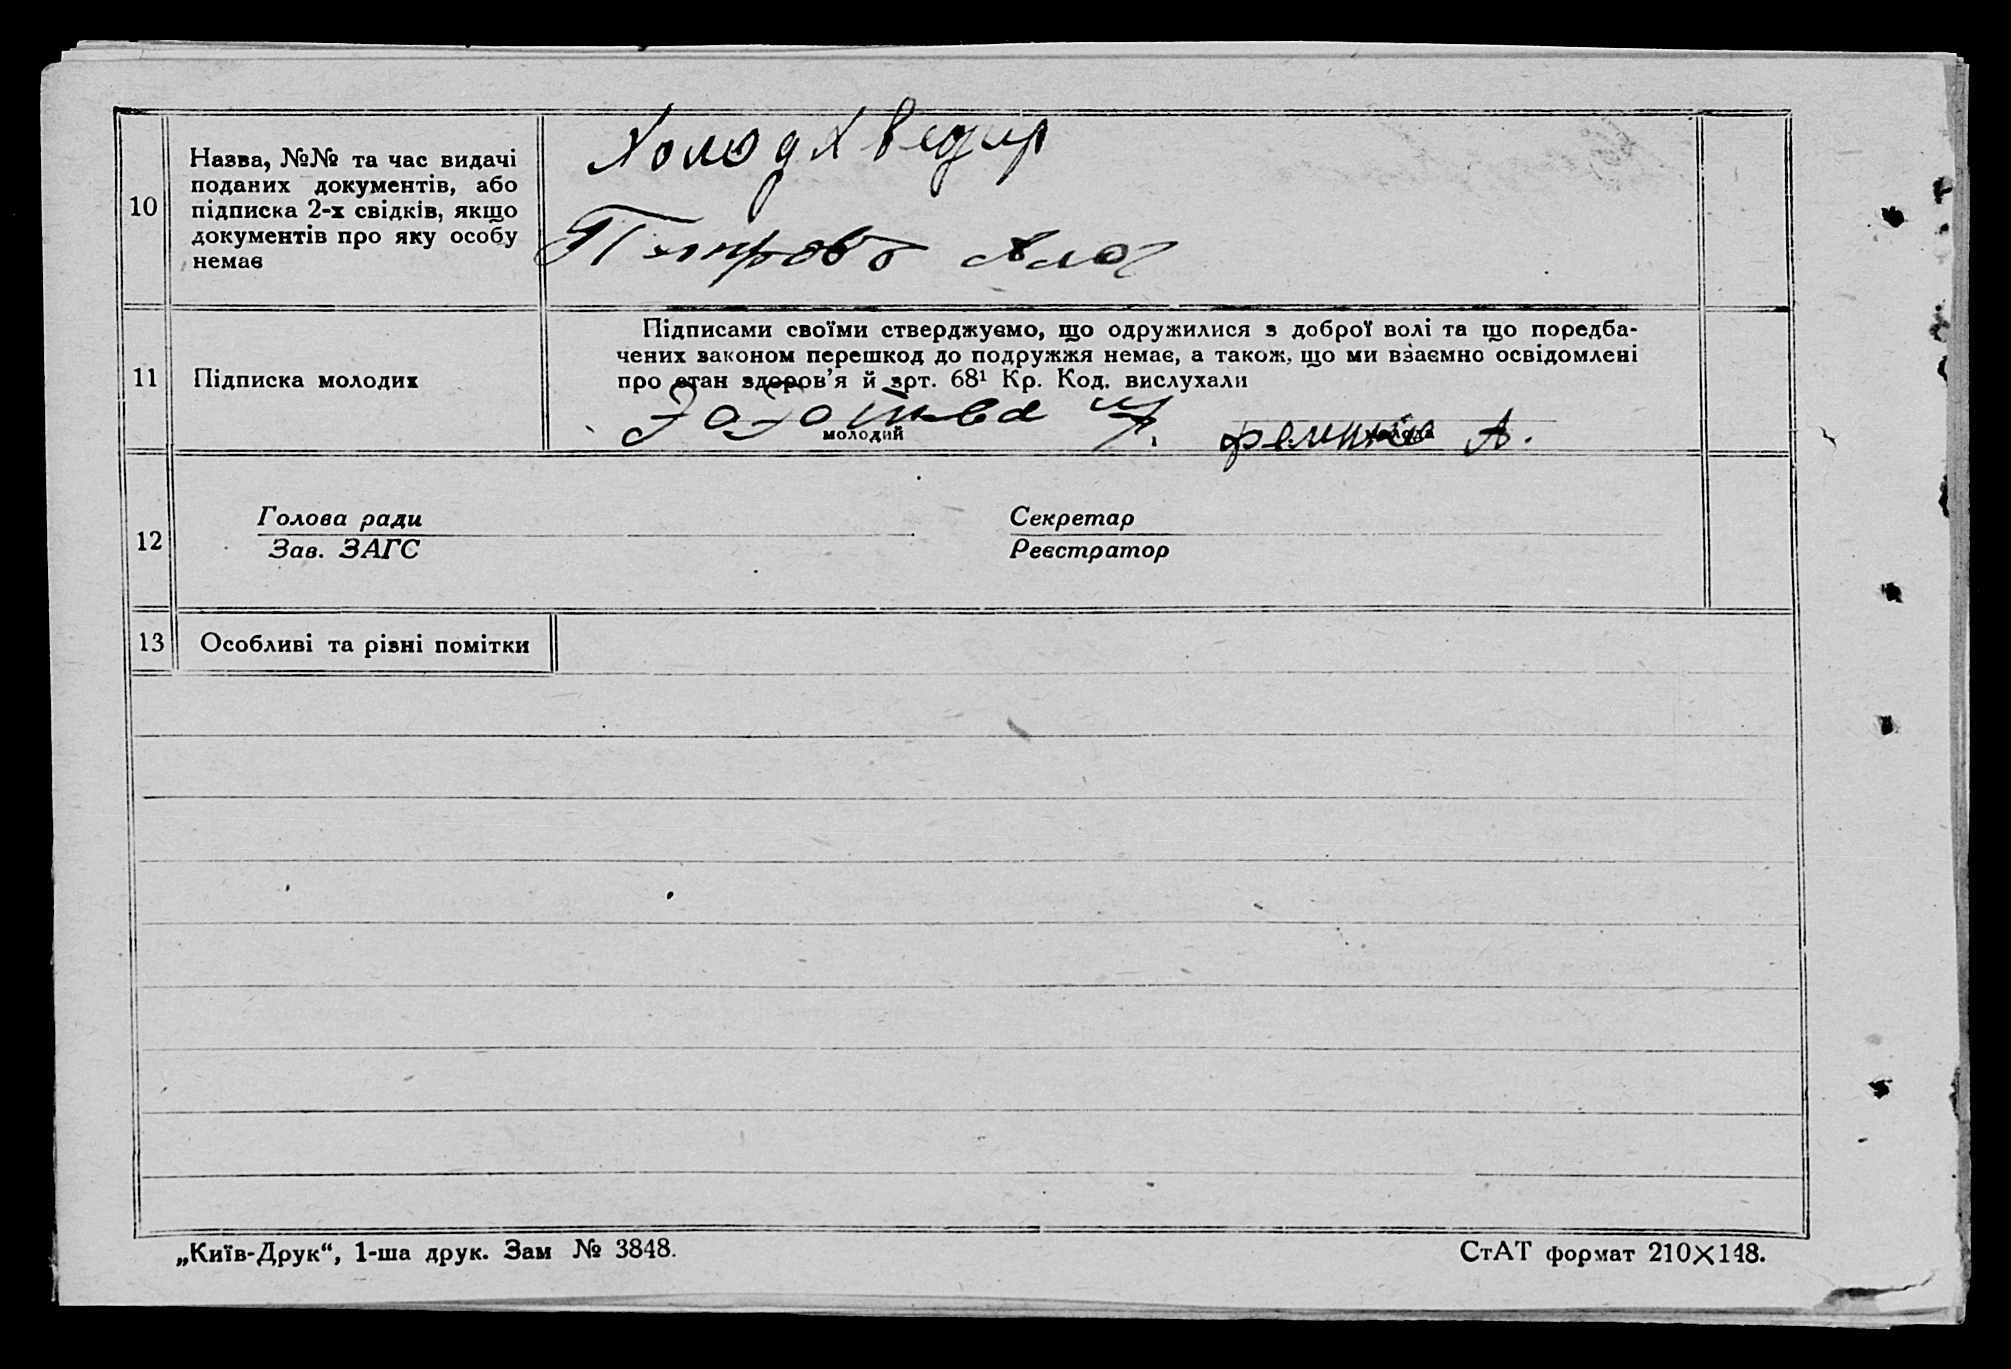 10
Назва, №№ та час видачі
поданих документів, або
підписка 2-х свідків, якщо
документів про яку особу
немає
Холод Хведір
Петрово
11
Підписка молодих
Підписами своїми стверджуємо, що одружилися з доброї волі та що поредба-
чених законом перешкод до подружжя немає, а також, що ми взаємно освідомлені
про стан здоров'я й арт. 68¹ Кр. Код. вислухали
А.
молодий
молода
12
Голова ради
Зав. ЗАГС
Секретар
Реєстратор
13
Особливі та різні помітки
„Київ-Друк“, 1-ша друк. Зам № 3848.
СтАТ формат 210×148.